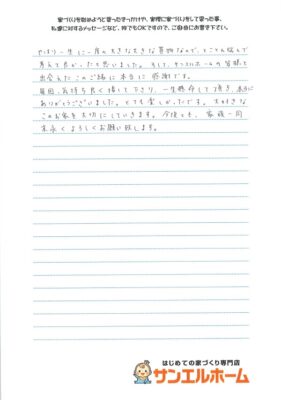 家づくりを始めようと思ったきっかけや、実際に家づくりをして思った事、
私達に対するメッセージなど、何でもOKですので、ご自由にお書き下さい。
やはり一生に一度の大きな大きな買物なんで、とことん悩んで
考えて良かったと思いました。そして、サンエルホームの皆様と
出会えたこのご縁に本当に感謝です。
毎回、気持ち良く接して下さり、一生懸命して頂き、本当に
ありがとうございました。とても楽しかったです。大好きな
このお家を大切にしていきます。今後とも、家族一同
末永くよろしくお願い致します。
はじめての家づくり専門店
サンエルホーム